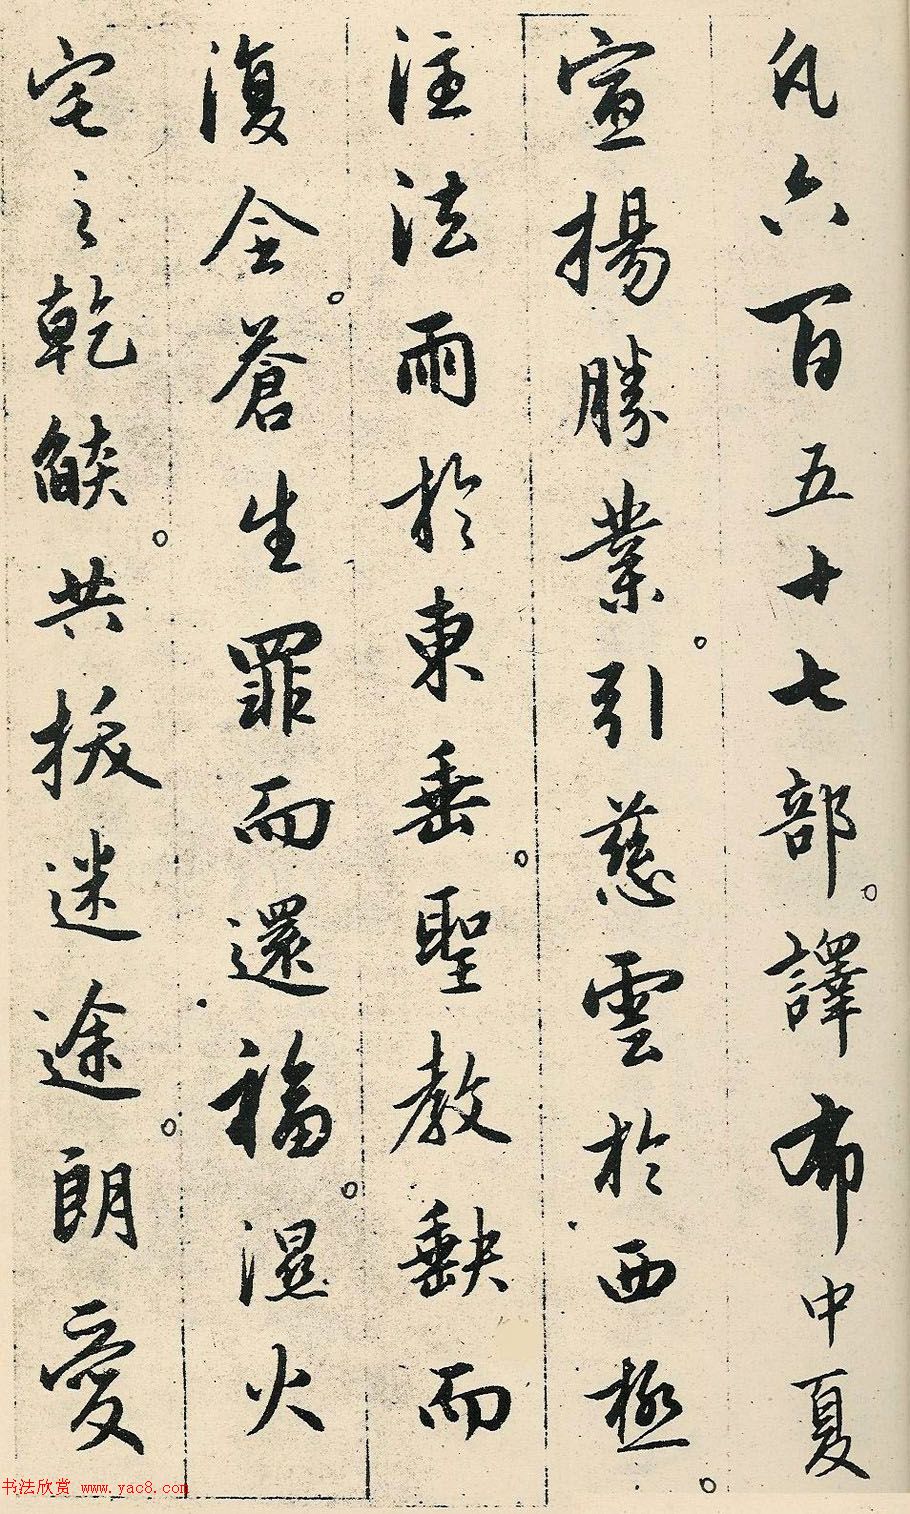 凡六百五十七部。譯布中夏
宣揚勝業。引慈雲於西極。
注法雨於東垂。聖教缺而
復全。蒼生罪而還福。濕火
宅之乾燄。共拔迷途。朗愛
书法欣赏 www.yac8.com